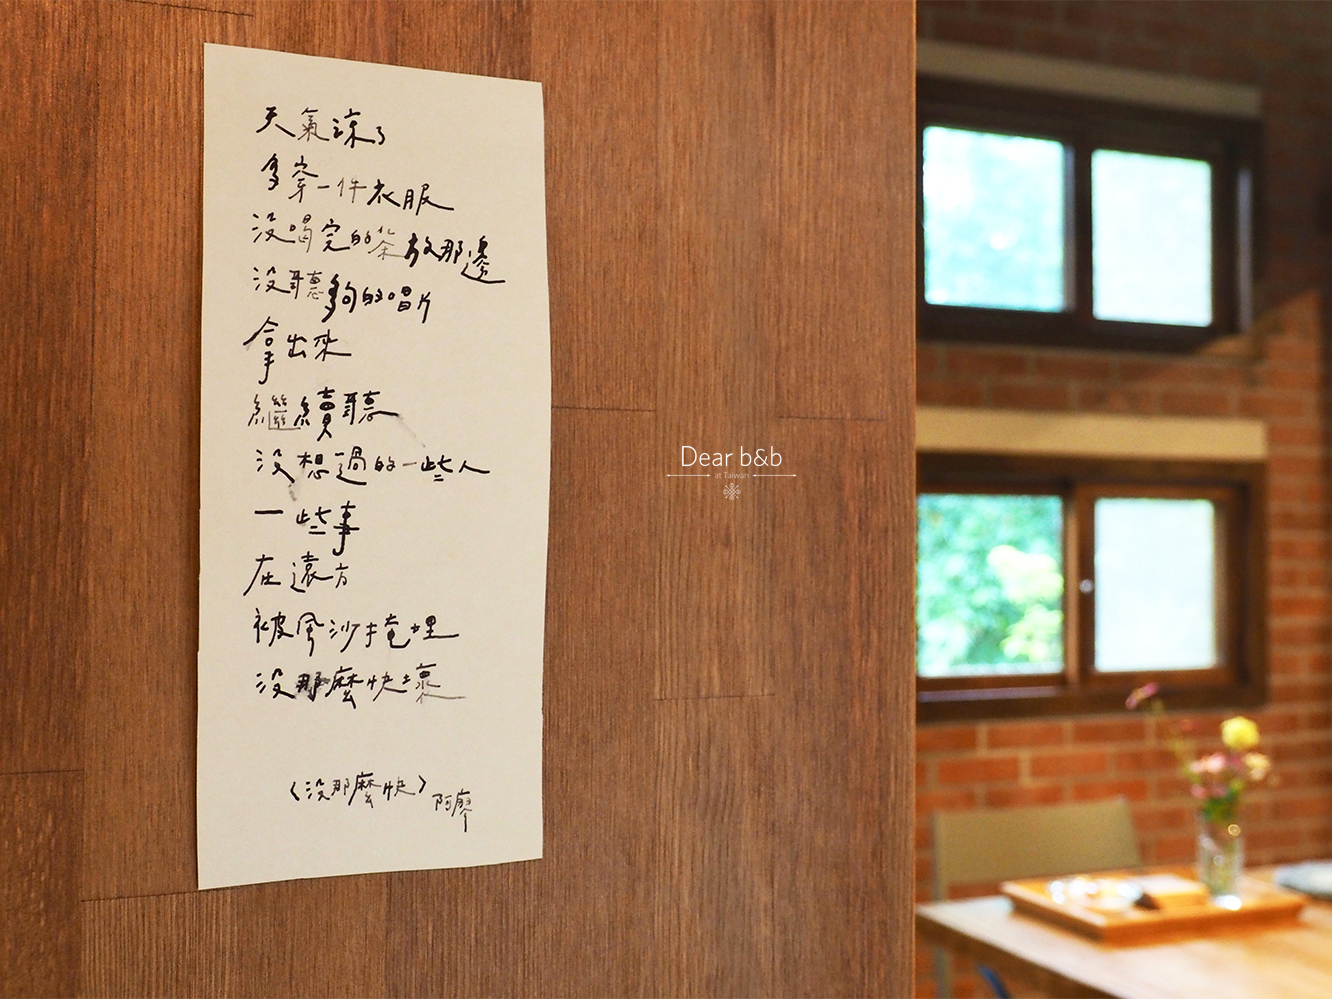 天氣涼了
多穿一件衣服
沒喝完的茶放那邊
沒聽夠的唱片
拿出來
繼續聽
沒想過的一些人
一些事
在遠方
被風沙掩埋
沒那麼快壞
〈沒那麼快〉阿廖
Dear b&b
at Taiwan